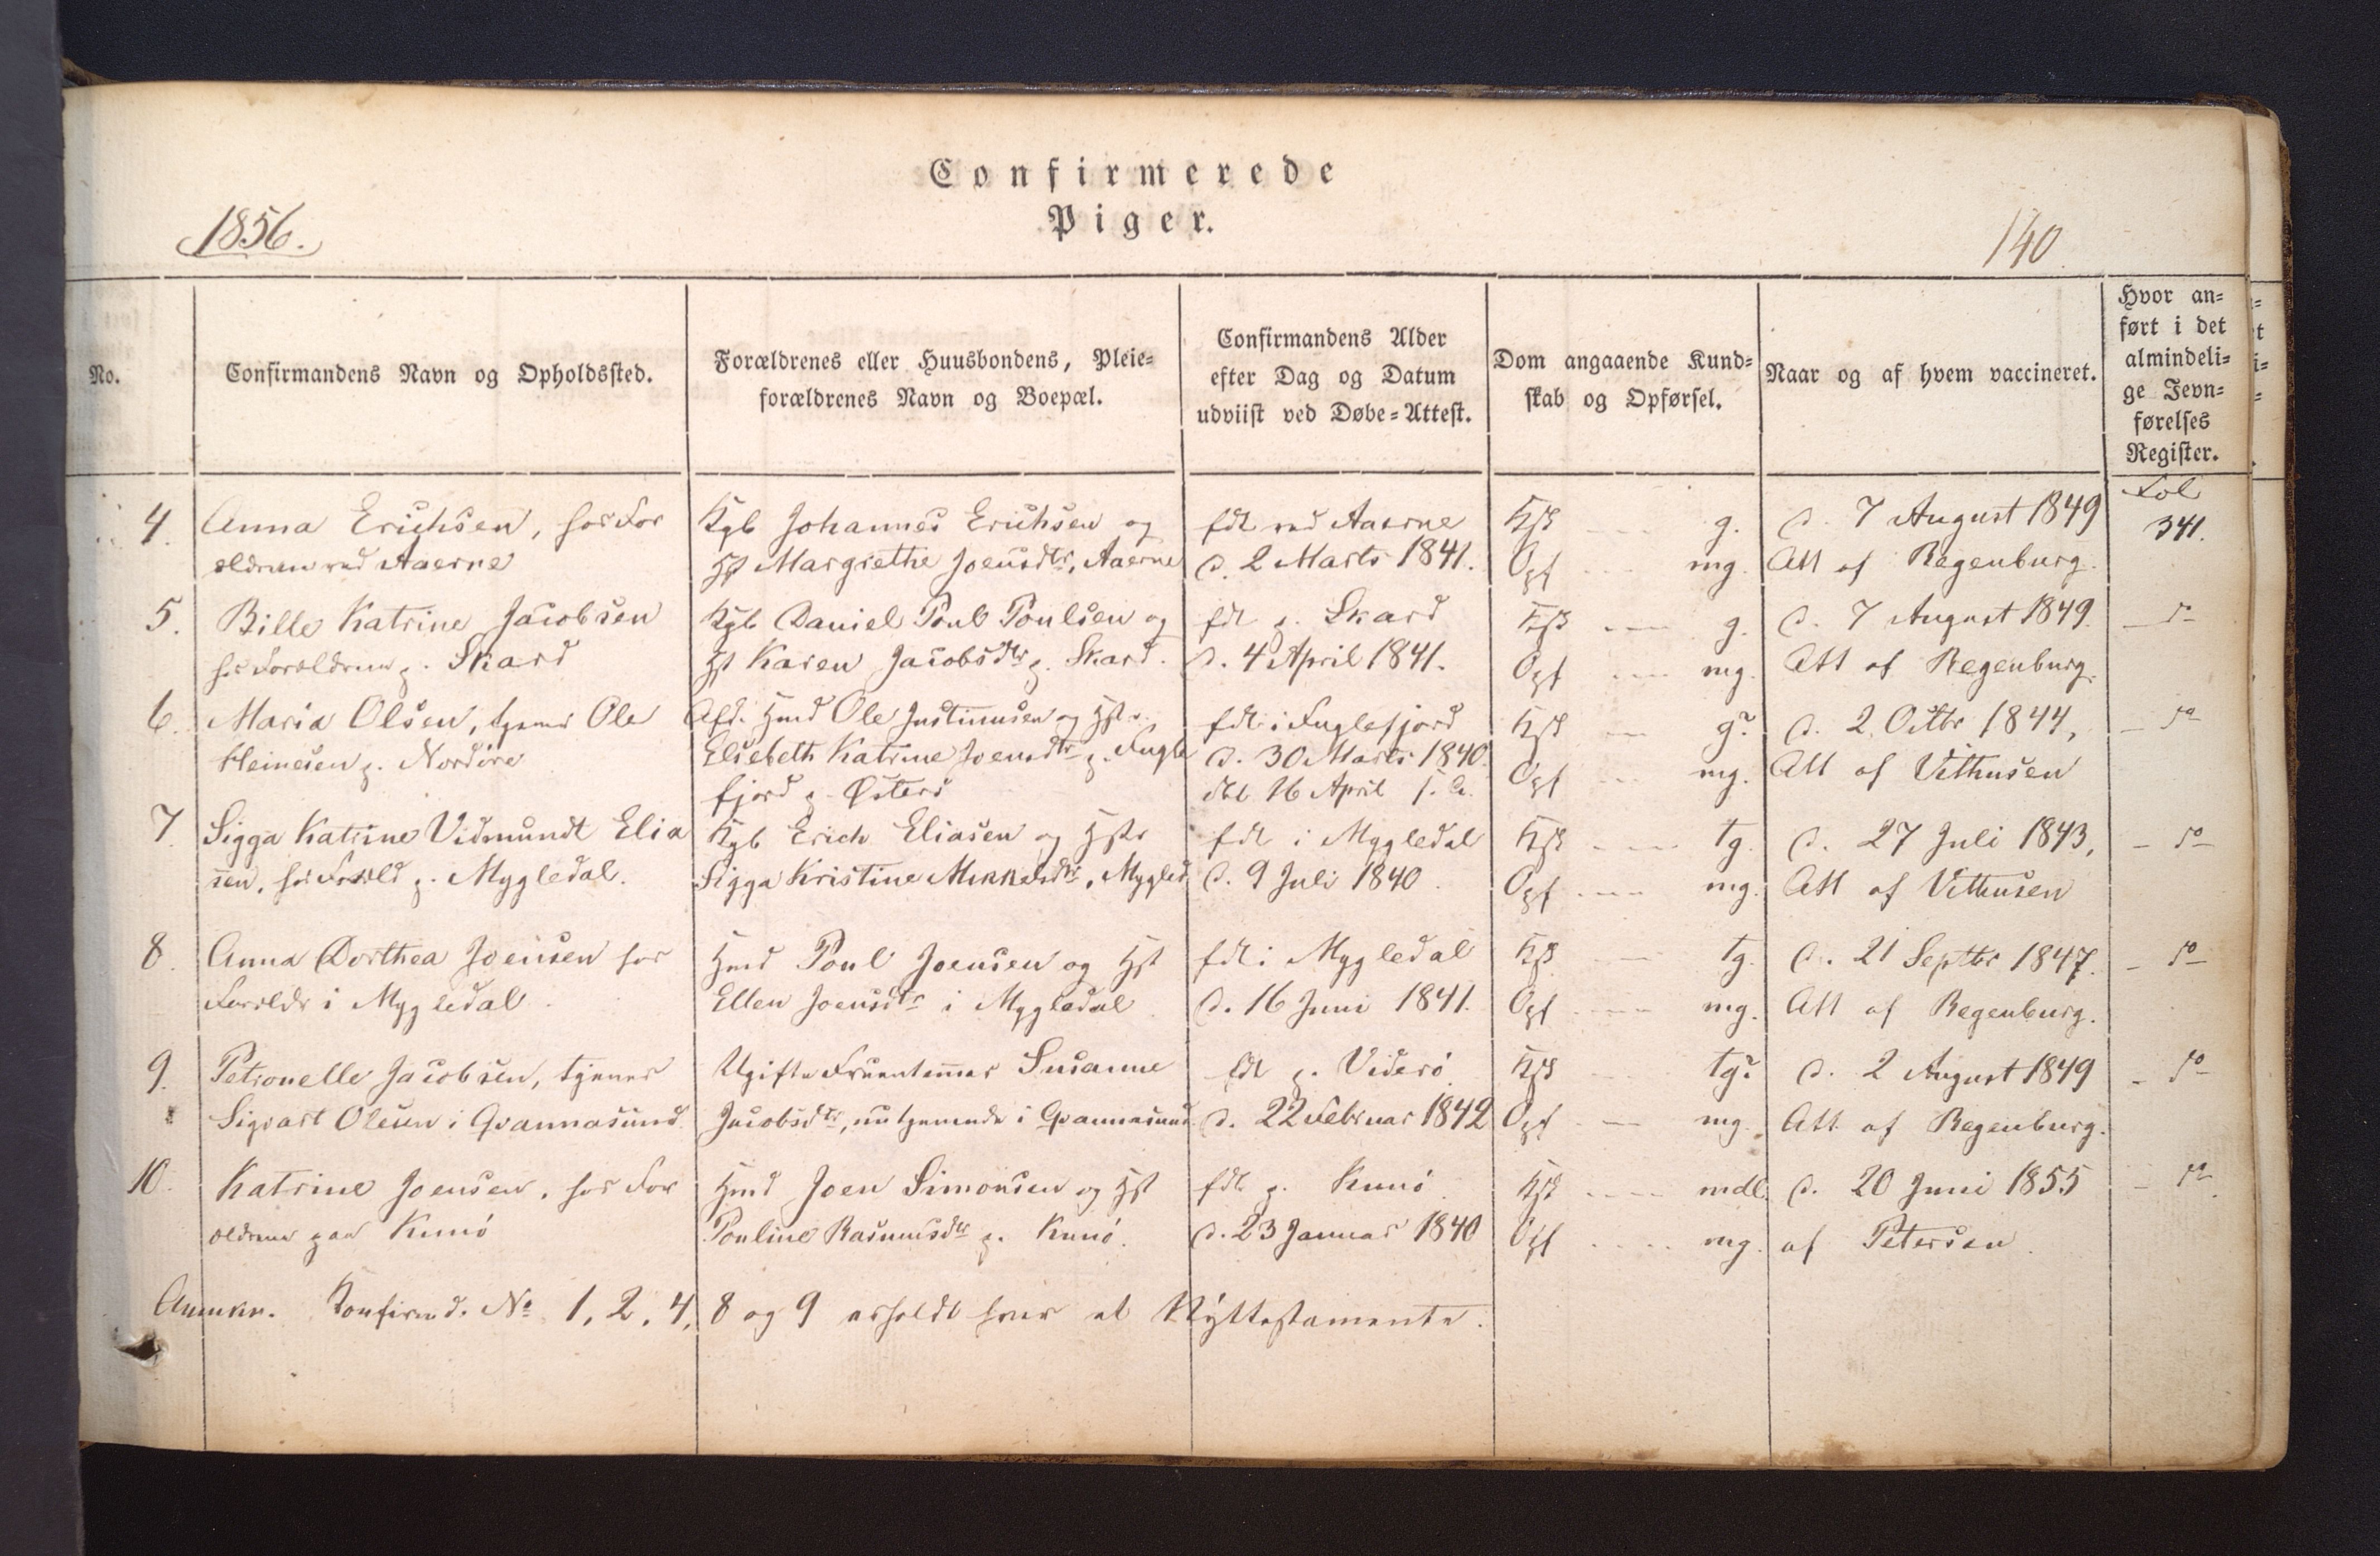 Confirmerede
Piger.
1856.
140.
No.
Confirmandens Navn og Opholdssted.
Forældrenes eller Huusbondens, Pleie=
forældrenes Navn og Boepæl.
Confirmandens Alder
efter Dag og Datum
udviist ved Døbe=Attest.
Dom angaaende Kund=
skab og Opførsel.
Naar og af hvem vaccineret.
Hvor an=
ført i det
almindeli=
ge Jevn=
førelses
Register.
4. Anna Erichsen, hos For
ældrene ved Aaerne
Kgb Johannes Erichsen og
Hst Margrethe Joensdtr, Aaerne
fdt ved Aaerne
d. 2 Marts 1841.
Ksk --- g.
Opf --- mg.
d. 7 August 1849
Att af Regenburg.
Fol
341.
5. Bille Katrine Jacobsen
hos Forældrene p. Skard
Kgb Daniel Poul Poulsen og
Hst Karen Jacobsdtr p. Skard.
fdt p. Skard
d. 4 April 1841.
Ksk --- g.
Opf --- mg.
d. 7 August 1849.
Att af Regenburg.
— do
6. Maria Olsen, tjener Ole
Heinesen p. Nordöre
Afd. Hmd Ole Justinusen og Hstr
Elsebeth Katrine Joensdtr p. Fugle
fjord p. Østerö
fdt i Fuglefjord
d. 30 Marts 1840.
dbt 16 April s. A.
Ksk -- g?
Opf -- mg.
d. 2 Octbr 1844,
Att af Vithusen
— do
7. Sigga Katrine Vidmundt Elia
sen, hos Foræld p. Mygledal.
Kgb Erich Eliasen og Hstr
Sigga Kristine Mikkelsdtr, Mygled
fdt i Mygledal
d. 9 Juli 1840.
Ksk --- tg.
Opf --- mg.
d. 27 Juli 1843,
Att af Vithusen
— do
8. Anna Dorthea Joensen hos
Forældr i Mygledal.
Hmd Poul Joensen og Hst
Ellen Joensdtr i Mygledal
fdt i Mygledal
d. 16 Juni 1841.
Ksk --- tg.
Opf --- mg.
d. 21 Septbr 1847.
Att af Regenburg.
— do
9. Petronelle Jacobsen, tjener
Sigvart Olesen i Qvannasund
Ugifte Fruentimmer Susanne
Jacobsdtr, nu tjenende i Qvannasund
fdt p. Viderö
d. 22 Februar 1842
Ksk --- tg?
Opf --- mg.
d. 2 August 1849
Att af Regenburg.
— do
10. Katrine Joensen, hos For
ældrene paa Kunö
Hmd Joen Simonsen og Hst
Pouline Rasmusdtr p. Kunö.
fdt p. Kunö
d. 23 Januar 1840
Ksk --- mdl.
Opf --- mg.
d. 20 Juni 1855
af Petersen.
— do
Anmkn. Konfirmd. No 1, 2, 4, 8 og 9 erholdt hver et Nyttestamente.